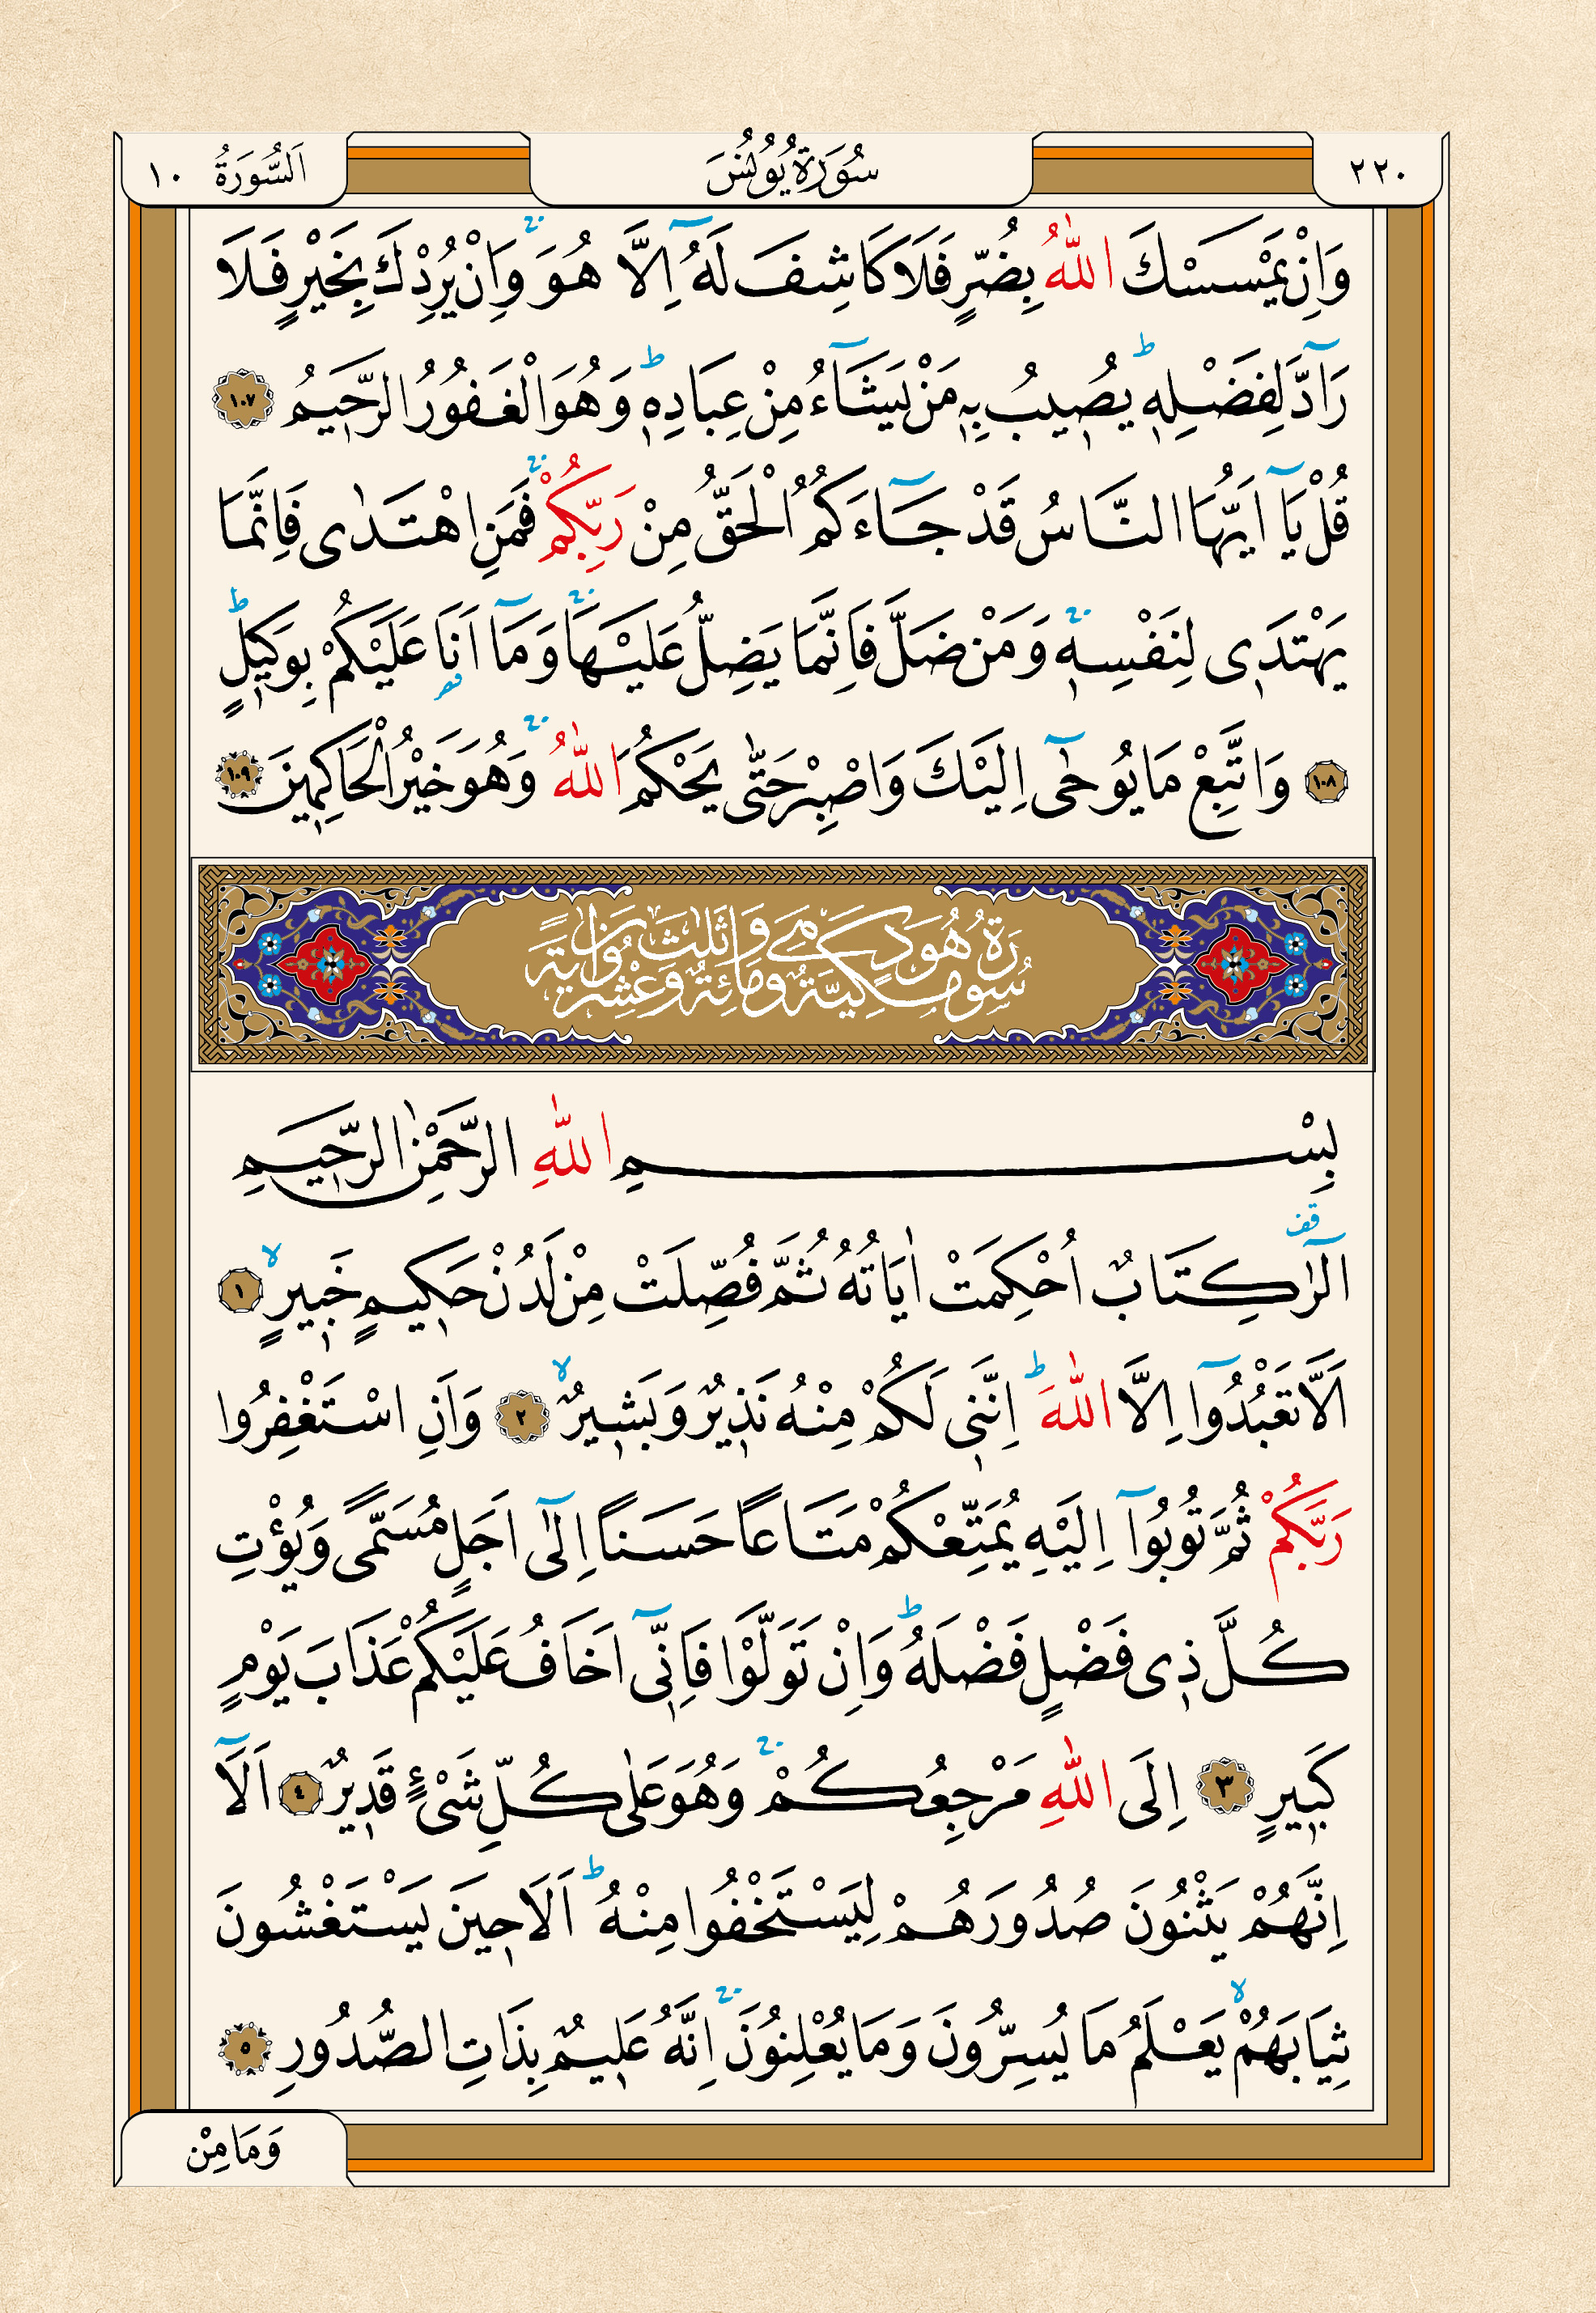 ٢٢٠ سُورَةُ يُونُسَ اَلسُّورَةُ ١٠
وَاِنْ يَمْسَسْكَ اللّٰهُ بِضُرٍّ فَلَا كَاشِفَ لَهُٓ اِلَّا هُوَۚ وَاِنْ يُرِدْكَ بِخَيْرٍ فَلَا
رَٓادَّ لِفَضْلِه۪ۜ يُص۪يبُ بِه۪ مَنْ يَشَٓاءُ مِنْ عِبَادِه۪ۜ وَهُوَ الْغَفُورُ الرَّح۪يمُ ١٠٧
قُلْ يَٓا اَيُّهَا النَّاسُ قَدْ جَٓاءَكُمُ الْحَقُّ مِنْ رَبِّكُمْۚ فَمَنِ اهْتَدٰى فَاِنَّمَا
يَهْتَد۪ي لِنَفْسِه۪ۚ وَمَنْ ضَلَّ فَاِنَّمَا يَضِلُّ عَلَيْهَاۚ وَمَٓا اَنَا۬ عَلَيْكُمْ بِوَك۪يلٍۜ
١٠٨ وَاتَّبِعْ مَا يُوحٰٓى اِلَيْكَ وَاصْبِرْ حَتّٰى يَحْكُمَ اللّٰهُۚ وَهُوَ خَيْرُ الْحَاكِم۪ينَ ١٠٩
سُورَةُ هُودٍ مَكِّيَّةٌ وَهِيَ مِائَةٌ وَثَلٰثٌ وَعِشْرُونَ اٰيَةً
بِسْمِ اللّٰهِ الرَّحْمٰنِ الرَّح۪يمِ
الٓرٰ۠ كِتَابٌ اُحْكِمَتْ اٰيَاتُهُ ثُمَّ فُصِّلَتْ مِنْ لَدُنْ حَك۪يمٍ خَب۪يرٍۙ ١
اَلَّا تَعْبُدُٓوا اِلَّا اللّٰهَۜ اِنَّن۪ي لَكُمْ مِنْهُ نَذ۪يرٌ وَبَش۪يرٌۙ ٢ وَاَنِ اسْتَغْفِرُوا
رَبَّكُمْ ثُمَّ تُوبُٓوا اِلَيْهِ يُمَتِّعْكُمْ مَتَاعاً حَسَناً اِلٰٓى اَجَلٍ مُسَمًّى وَيُؤْتِ
كُلَّ ذ۪ي فَضْلٍ فَضْلَهُۜ وَاِنْ تَوَلَّوْا فَاِنّ۪ٓي اَخَافُ عَلَيْكُمْ عَذَابَ يَوْمٍ
كَب۪يرٍ ٣ اِلَى اللّٰهِ مَرْجِعُكُمْۚ وَهُوَ عَلٰى كُلِّ شَيْءٍ قَد۪يرٌ ٤ اَلَٓا
اِنَّهُمْ يَثْنُونَ صُدُورَهُمْ لِيَسْتَخْفُوا مِنْهُۜ اَلَا ح۪ينَ يَسْتَغْشُونَ
ثِيَابَهُمْۙ يَعْلَمُ مَا يُسِرُّونَ وَمَا يُعْلِنُونَۚ اِنَّهُ عَل۪يمٌ بِذَاتِ الصُّدُورِ ٥
وَمَا مِنْ